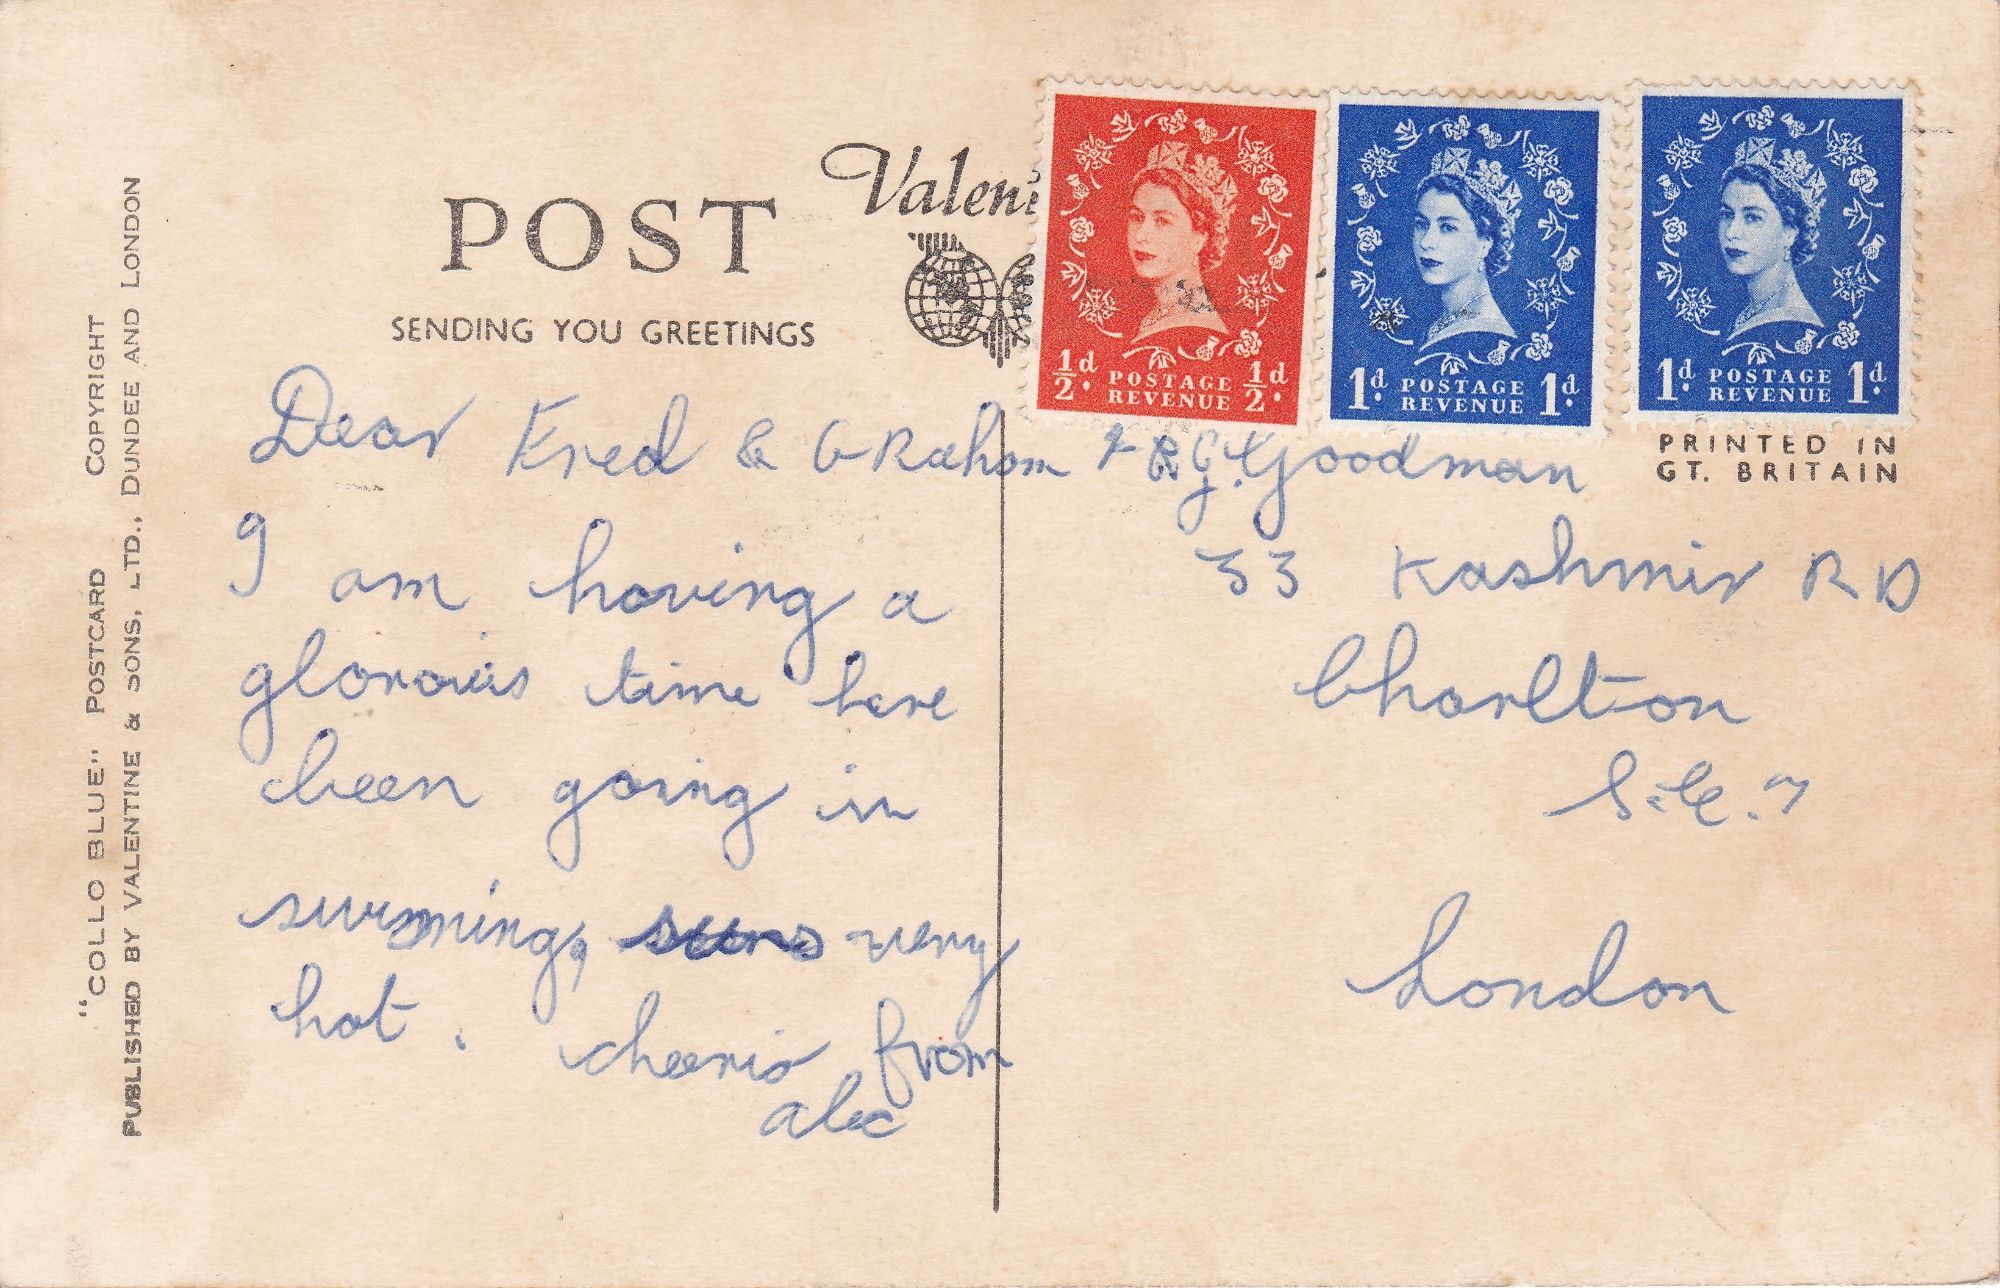 "COLLO BLUE" POSTCARD COPYRIGHT
PUBLISHED BY VALENTINE & SONS, LTD., DUNDEE AND LONDON
POST
SENDING YOU GREETINGS
Valen
½d. POSTAGE REVENUE ½d.
1d. POSTAGE REVENUE 1d.
1d. POSTAGE REVENUE 1d.
PRINTED IN
GT. BRITAIN
Dear Fred & GRaham
I am having a
glorious time here
been going in
swimming, very
hot. cheerio from
alec
F & G. Goodman
33 Kashmir RD
Charlton
S.E.7
London